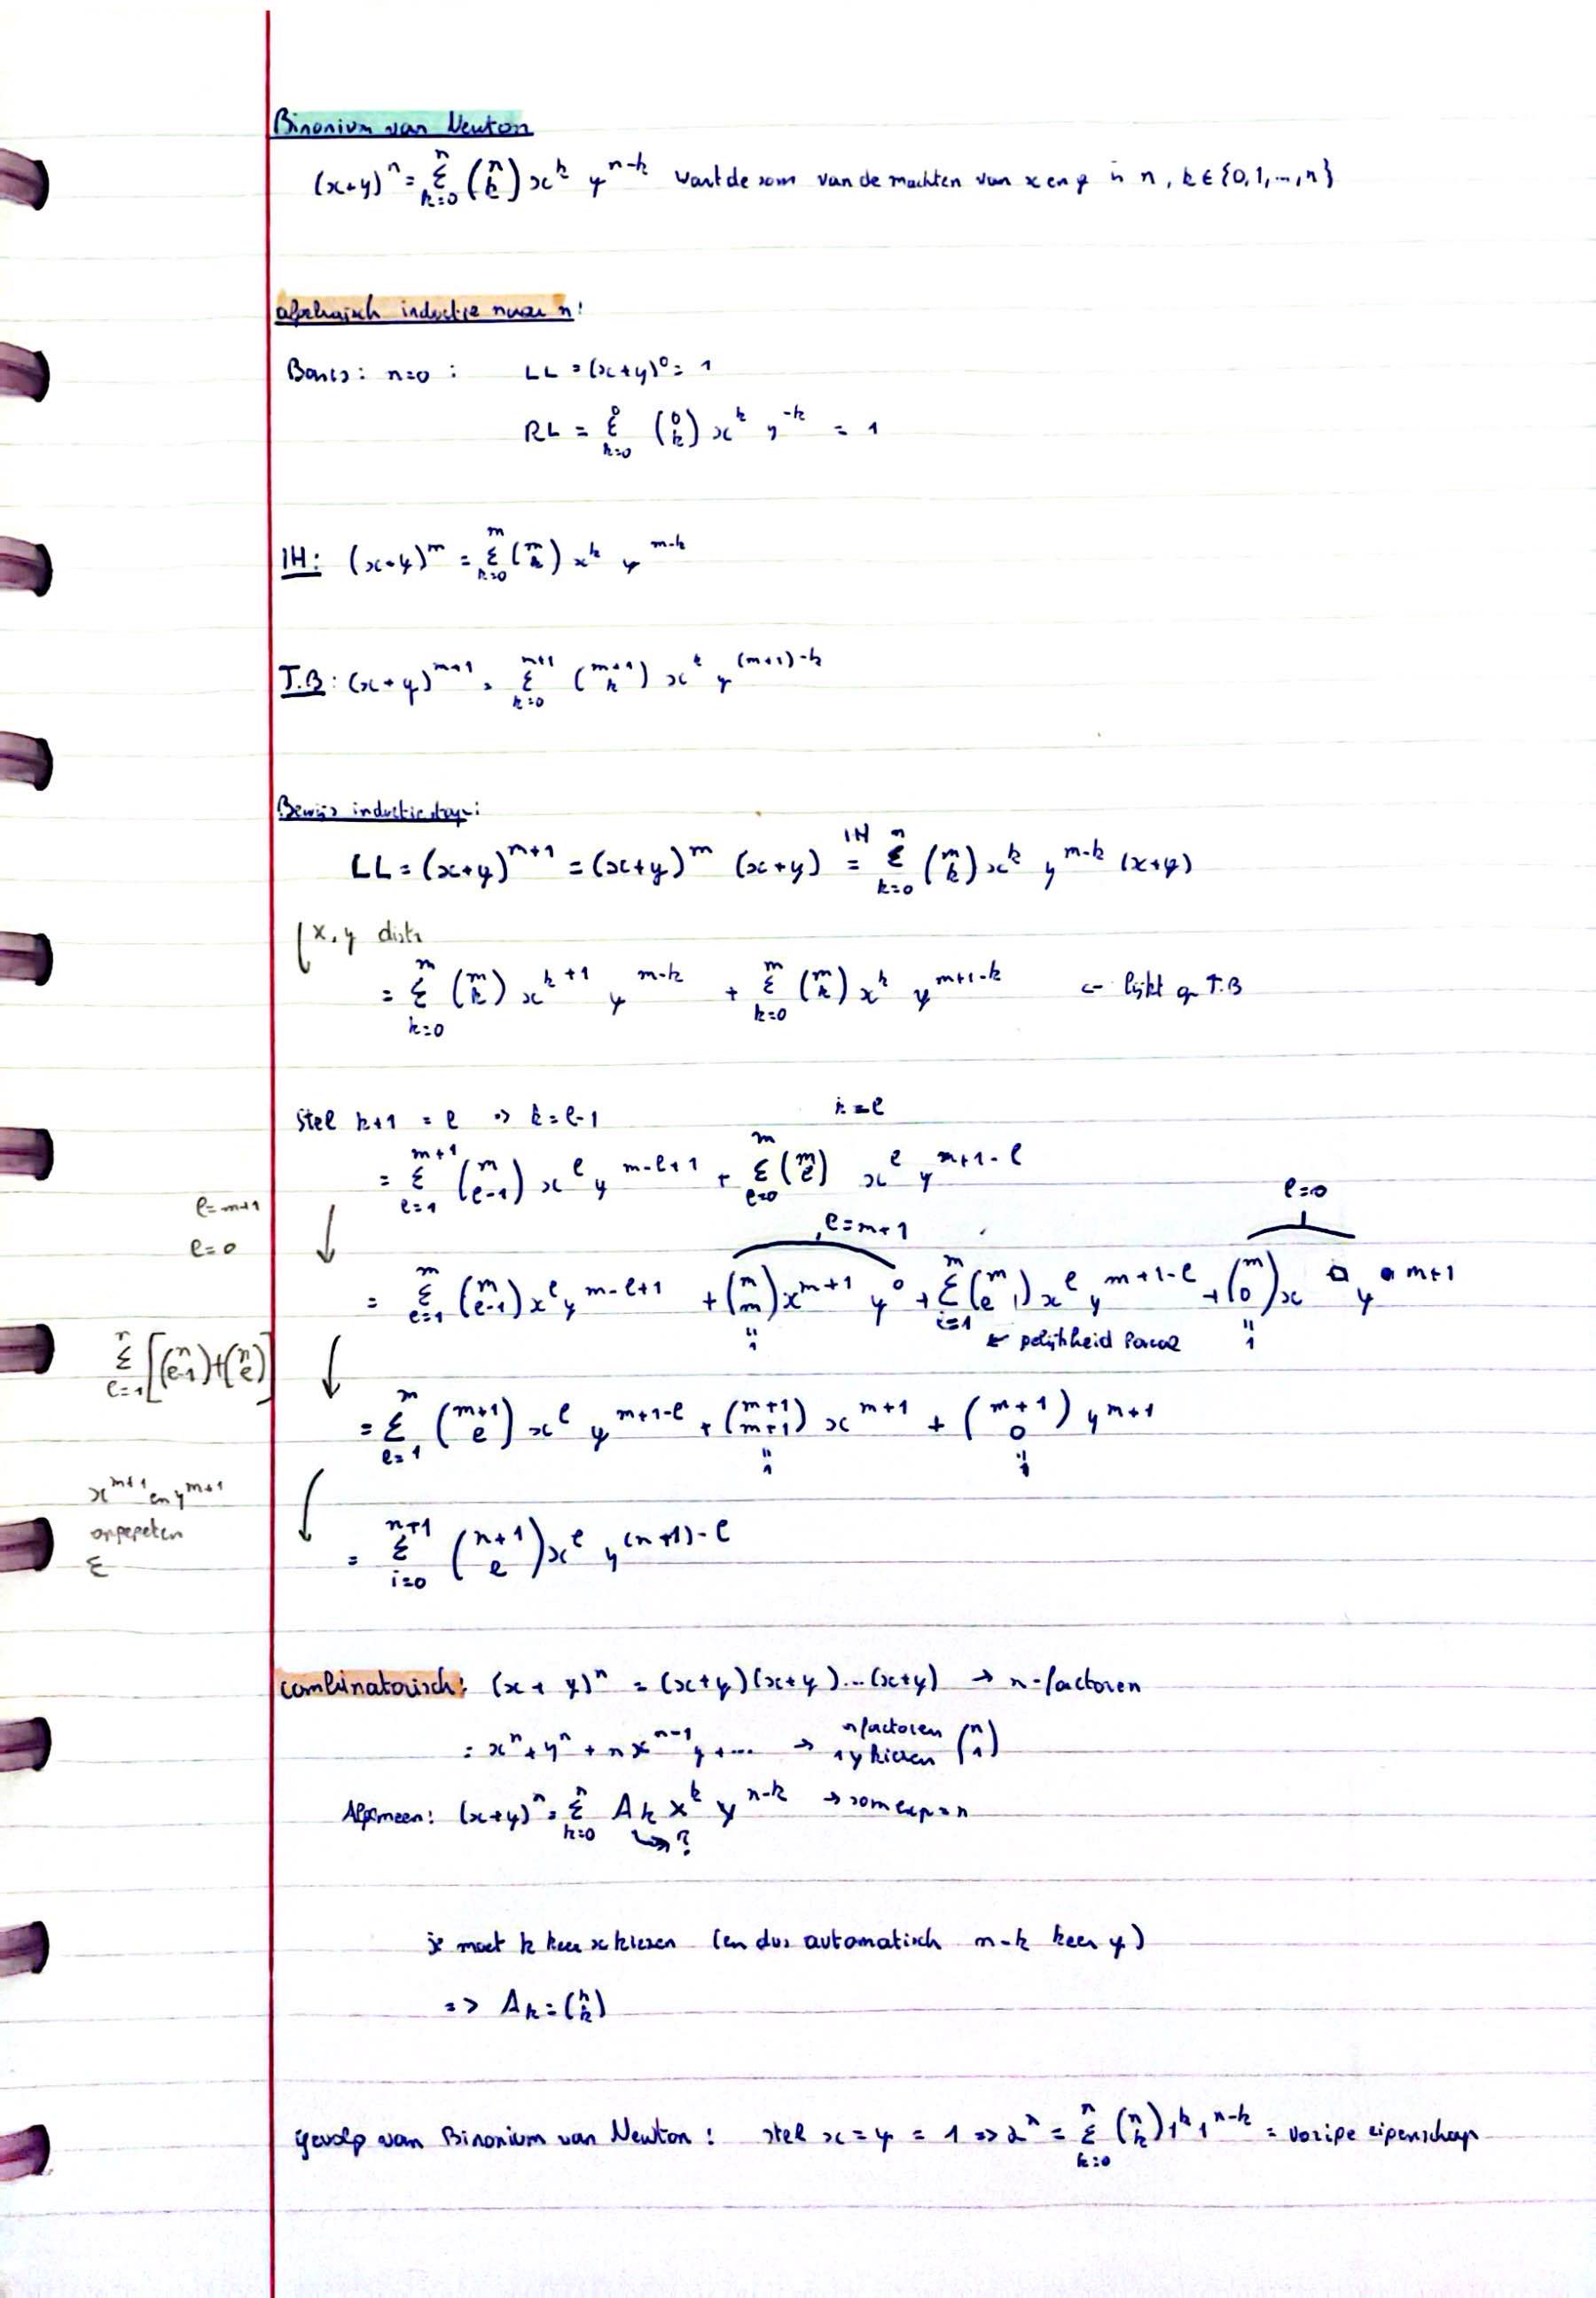 Binonium van Newton
(x+y)^n = Σ_{k=0}^{n} (n k) x^k y^{n-k} want de som van de machten van x en y is n, k ∈ {0,1,...,n}
algebraisch inductie naar n:
Basis: n=0 : LL = (x+y)^0 = 1
RL = Σ_{k=0}^{0} (0 k) x^k y^{-k} = 1
IH: (x+y)^m = Σ_{k=0}^{m} (m k) x^k y^{m-k}
T.B: (x+y)^{m+1} = Σ_{k=0}^{m+1} (m+1 k) x^k y^{(m+1)-k}
Bewijs inductiestap:
LL = (x+y)^{m+1} = (x+y)^m (x+y) =^{IH} Σ_{k=0}^{n} (m k) x^k y^{m-k} (x+y)
x, y distr
= Σ_{k=0}^{m} (m k) x^{k+1} y^{m-k} + Σ_{k=0}^{m} (m k) x^k y^{m+1-k} ← lijkt op T.B
Stel k+1 = l => k = l-1 k = l
= Σ_{l=1}^{m+1} (m l-1) x^l y^{m-l+1} + Σ_{l=0}^{m} (m l) x^l y^{m+1-l}
l = m+1
l = 0
l = m+1 l = 0
= Σ_{l=1}^{m} (m l-1) x^l y^{m-l+1} + (m m) x^{m+1} y^0 + Σ_{i=1}^{m} (m l) x^l y^{m+1-l} + (m 0) x^0 y^{m+1}
" 1 ← gelijkheid Pascal " 1
Σ_{l=1}^{n} [(n l-1) + (n l)]
= Σ_{l=1}^{m} (m+1 l) x^l y^{m+1-l} + (m+1 m+1) x^{m+1} + (m+1 0) y^{m+1}
" 1 " 1
x^{m+1} en y^{m+1}
opgegeten
Σ
= Σ_{i=0}^{n+1} (n+1 l) x^l y^{(n+1)-l}
combinatorisch: (x+y)^n = (x+y)(x+y)...(x+y) → n-factoren
= x^n + y^n + n x^{n-1} y + ... → n factoren 1 y kiezen (n 1)
Algemeen: (x+y)^n = Σ_{k=0}^{n} A_k x^k y^{n-k} → som exp = n
↳ ?
je moet k keer x kiezen (en dus automatisch n-k keer y)
=> A_k = (n k)
gevolg van Binonium van Newton: stel x = y = 1 => 2^n = Σ_{k=0}^{n} (n k) 1^k 1^{n-k} = vorige eigenschap